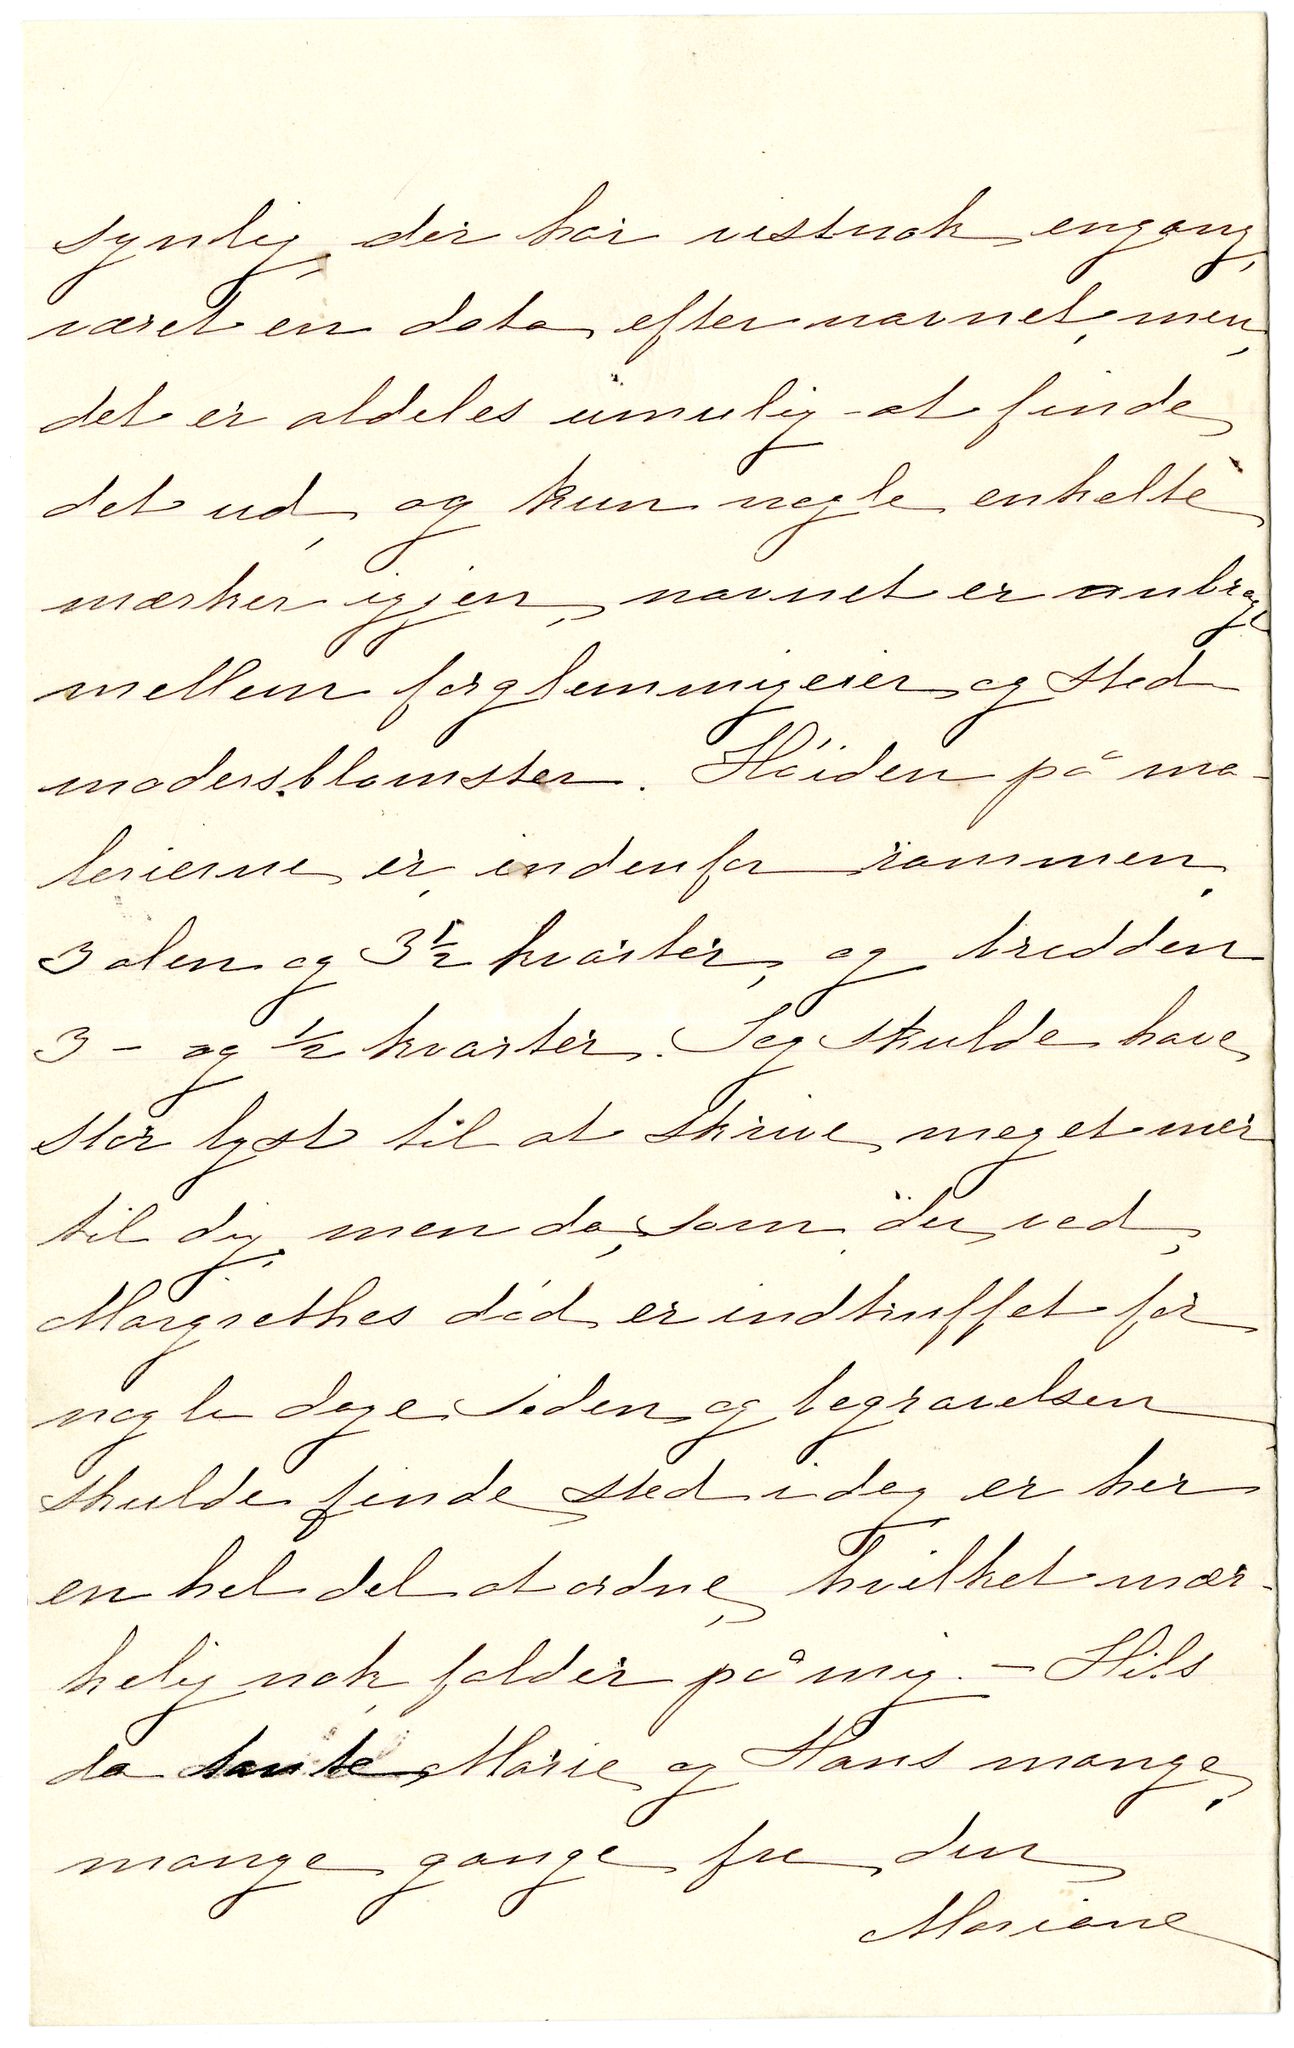 synlig, der har vistnok engang,
været en data efter navnet, men,
det er aldeles umulig at finde
det ud, og kun nogle enkelte
mærker igjen, navnet er anbragt
mellem forglemmigeier og sted
modersblomster. Høiden på ma-
lerierne er, indenfor rammen,
3 alen og 3 1/2 kvarter, og bredden
3 - og 1/2 kvarter. Jeg skulde have
stor lyst til at skrive meget mer
til dig, men da, som du ved,
Margrethes død er indtruffet for
nogle dage siden og begravelsen
skulde finde sted idag er her
en hel del at ordne, hvilket mær-
kelig nok falder på mig. - Hils
da tante Marie og Hans mange,
mange gange fra din
Mariane